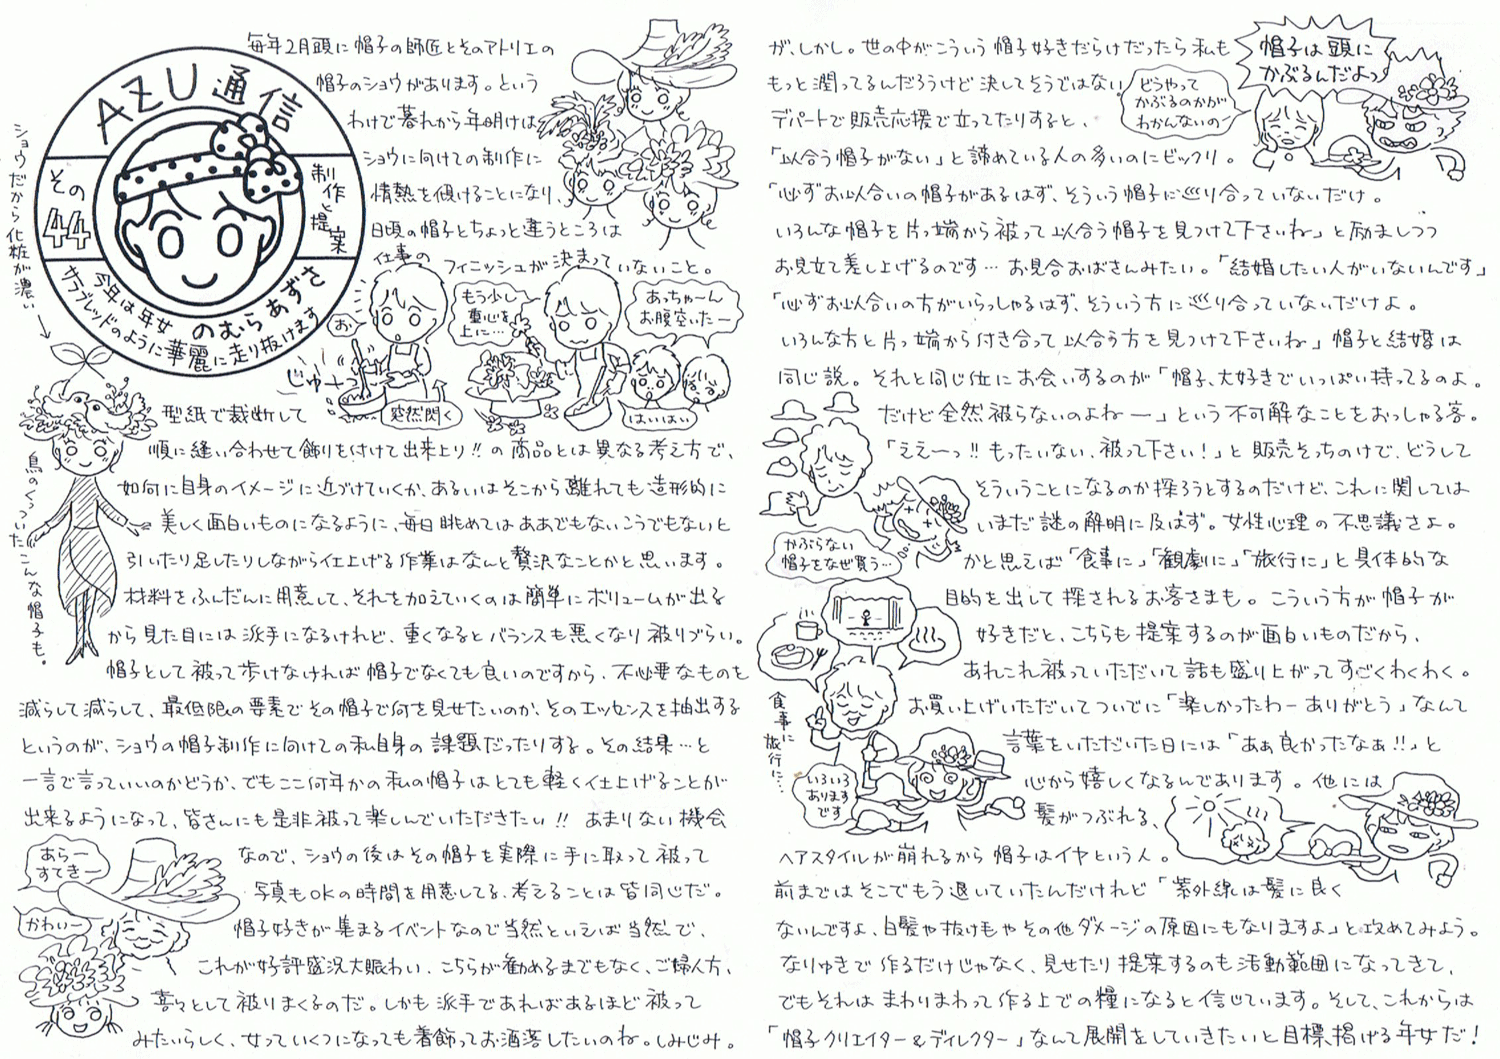 AZU通信
その44
制作と提案
のむらあずさ
今年は年女
キラブレッドのように華麗に走り抜けます
ショウだから化粧が濃い
毎年2月頭に帽子の師匠とそのアトリエの
帽子のショウがあります。という
わけで暮れから年明けは
ショウに向けての制作に
情熱を傾けることになり、
日頃の帽子とちょっと違うところは
仕事のフィニッシュが決まっていないこと。
お、
じゅーっ
突然閃く
もう少し
重心を
上に…
あっちゃーん
お腹空いたー
はいはい
鳥のくっついたこんな帽子も。
型紙で裁断して
順に縫い合わせて飾りを付けて出来上り!!の商品とは異なる考え方で、
如何に自身のイメージに近づけていくか、あるいはそこから離れても造形的に
美しく面白いものになるように、毎日眺めてはああでもないこうでもないと
引いたり足したりしながら仕上げる作業はなんと贅沢なことかと思います。
材料をふんだんに用意して、それを加えていくのは簡単にボリュームが出る
から見た目には派手になるけれど、重くなるとバランスも悪くなり被りづらい。
帽子として被って歩けなければ帽子でなくても良いのですから、不必要なものを
減らして減らして、最低限の要素でその帽子で何を見せたいのか、そのエッセンスを抽出する
というのが、ショウの帽子制作に向けての私自身の課題だったりする。その結果…と
一言で言っていいのかどうか、でもここ何年かの私の帽子はとても軽く仕上げることが
出来るようになって、皆さんにも是非被って楽しんでいただきたい!! あまりない機会
なので、ショウの後はその帽子を実際に手に取って被って
写真もOKの時間を用意してる、考えることは皆同じだ。
帽子好きが集まるイベントなので当然といえば当然で、
これが好評盛況大賑わい、こちらが勧めるまでもなく、ご婦人方、
喜々として被りまくるのだ。しかも派手であればあるほど被って
みたいらしく、女っていくつになっても着飾ってお洒落したいのね。しみじみ。
あらー
すてきー
かわいー
が、しかし。世の中がこういう帽子好きだらけだったら私も
もっと潤ってるんだろうけど決してそうではない
デパートで販売応援で立ってたりすると、
「似合う帽子がない」と諦めている人の多いのにビックリ。
どうやって
かぶるのかが
わかんないのー
帽子は頭に
かぶるんだよっ
「必ずお似合いの帽子があるはず、そういう帽子に巡り合っていないだけ。
いろんな帽子を片っ端から被って似合う帽子を見つけて下さいね」と励ましつつ
お見立て差し上げるのです…お見合おばさんみたい。「結婚したい人がいないんです」
「必ずお似合いの方がいらっしゃるはず、そういう方に巡り合っていないだけよ。
いろんな方と片っ端から付き合って似合う方を見つけて下さいね」帽子と結婚は
同じ説。それと同じ位にお会いするのが「帽子、大好きでいっぱい持ってるのよ。
だけど全然被らないのよねー」という不可解なことをおっしゃる客。
「ええーっ!!もったいない、被って下さい!」と販売そっちのけで、どうして
そういうことになるのか探ろうとするのだけど、これに関しては
いまだ謎の解明に及ばず。女性心理の不思議さよ。
かぶらない
帽子をなぜ買う…
かと思えば「食事に」「観劇に」「旅行に」と具体的な
目的を出して探されるお客さまも。こういう方が帽子が
好きだと、こちらも提案するのが面白いものだから、
あれこれ被っていただいて話も盛り上がってすごくわくわく。
お買い上げいただいてついでに「楽しかったわーありがとう」なんて
言葉をいただいた日には「あぁ良かったなぁ!!」と
心から嬉しくなるんであります。他には
食事に
旅行に…
いろいろ
あります
です
髪がつぶれる、
ヘアスタイルが崩れるから帽子はイヤという人。
前まではそこでもう退いていたんだけれど「紫外線は髪に良く
ないんですよ、白髪や抜け毛やその他ダメージの原因にもなりますよ」と攻めてみよう。
なりゆきで作るだけじゃなく、見せたり提案するのも活動範囲になってきて、
でもそれはまわりまわって作る上での糧になると信じています。そして、これからは
「帽子クリエイター&ディレクター」なんて展開をしていきたいと目標、掲げる年女だ!